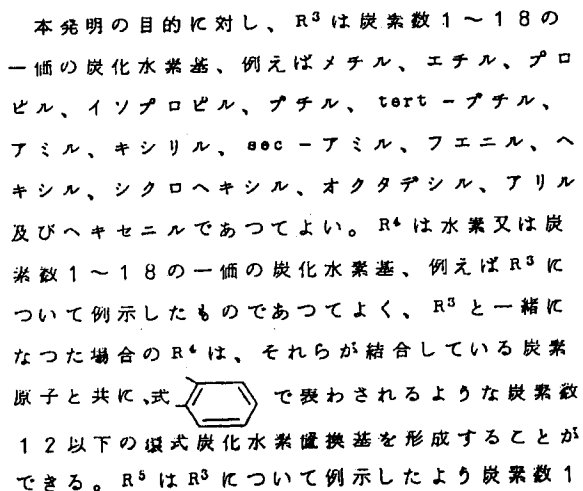 本発明の目的に対し、R³は炭素数1～18の
一価の炭化水素基、例えばメチル、エチル、プロ
ピル、イソプロピル、ブチル、tert－ブチル、
アミル、キシリル、sec－アミル、フエニル、ヘ
キシル、シクロヘキシル、オクタデシル、アリル
及びヘキセニルであつてよい。R⁴は水素又は炭
素数1～18の一価の炭化水素基、例えばR³に
ついて例示したものであつてよく、R³と一緒に
なつた場合のR⁴は、それらが結合している炭素
原子と共に、式 で表わされるような炭素数
12以下の環式炭化水素置換基を形成することが
できる。R⁵はR³について例示したよう炭素数1